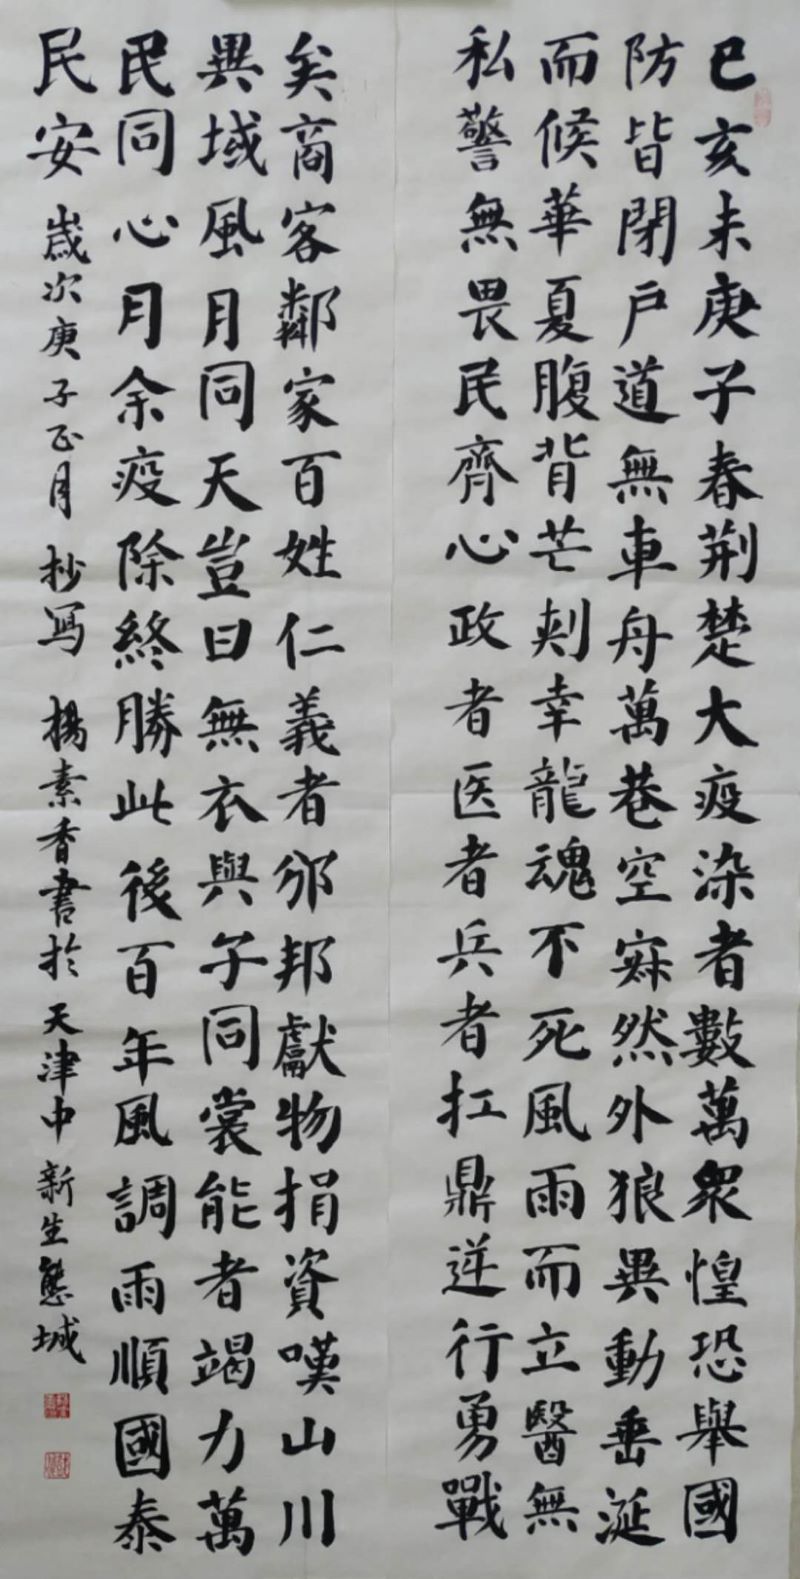 己亥末庚子春荆楚大疫染者數萬眾惶恐舉國
防皆閉戶道無車舟萬巷空寂然外狼異動垂涎
而候華夏腹背芒刺幸龍魂不死風雨而立醫無
私警無畏民齊心政者医者兵者扛鼎逆行勇戰
矣商客鄰家百姓仁義者邠邦獻物捐資嘆山川
異域風月同天豈曰無衣與子同裳能者竭力萬
民同心月余疫除終勝此後百年風調雨順國泰
民安 歲次庚子正月 抄写 楊素香書於天津中新生態城